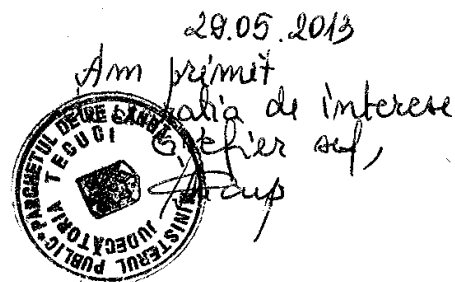 29.05.2013
Am primit
ratia de interese
Grefier sef,
MINISTERUL PUBLIC * PARCHETUL DE PE LÂNGĂ
JUDECĂTORIA TECUCI